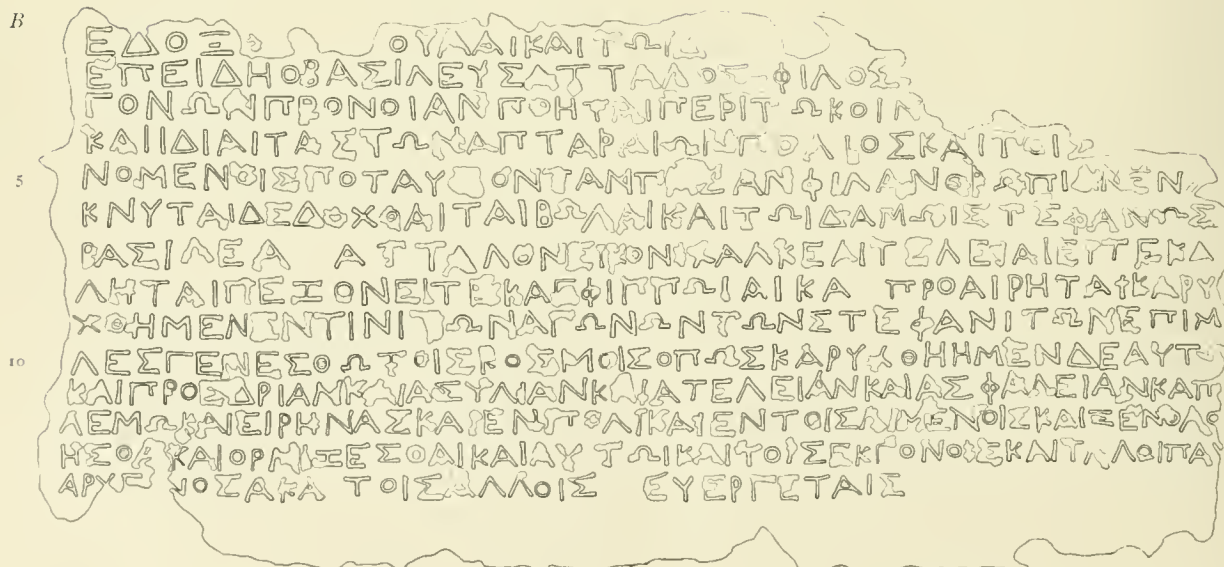 B
ΕΔΟΞΕ ΟΥΛΑΙΚΑΙΤΩΙΔ
ΕΠΕΙΔΗΟΒΑΣΙΛΕΥΣΑΤΤΑΛΟΣΦΙΛΟΣ
ΓΟΝΩΝΠΡΟΝΟΙΑΝΠΟΗΤΑΙΠΕΡΙΤΩΚΟΙΝ
ΚΑΙΙΔΙΑΙΤΑΣΤΩΝΑΠΤΑΡΑΙΩΝΠΟΛΙΟΣΚΑΙΤΟΙΣ
5 ΝΟΜΕΝΟΙΣΠΟΤΑΥΤΟΝΤΑΜΠΑΣΑΝΦΙΛΑΝΘΡΩΠΙΑΝΕΝ
ΚΝΥΤΑΙΔΕΔΟΧΘΑΙΤΑΙΒΩΛΑΙΚΑΙΤΩΙΔΑΜΩΙΣΤΕΦΑΝΩΣ
ΒΑΣΙΛΕΑ ΑΤΤΑΛΟΝΕΙΚΟΝΙΧΑΛΚΕΑΙΤΕΛΕΙΑΙΕΙΤΕΚΑ
ΛΗΤΑΙΠΕΞΟΝΕΙΤΕΚΑΕΦΙΠΠΩΙΑΙΚΑ ΠΡΟΑΙΡΗΤΑΙΚΑΡΥ
ΧΘΗΜΕΝΕΝΤΙΝΙΤΩΝΑΓΩΝΩΝΤΩΝΣΤΕΦΑΝΙΤΩΝΕΠΙΜ
10 ΛΕΣΓΕΝΕΣΘΩΤΟΙΣΚΟΣΜΟΙΣΟΠΩΣΚΑΡΥΧΘΗΗΜΕΝΔΕΑΥΤΩ
ΚΑΙΠΡΟΕΔΡΙΑΝΚΑΙΑΣΥΛΙΑΝΚΑΙΑΤΕΛΕΙΑΝΚΑΙΑΣΦΑΛΕΙΑΝΚΑΠ
ΛΕΜΩΚΑΙΕΙΡΗΝΑΣΚΑΙΕΝΠΟΛΙΚΑΙΕΝΤΟΙΣΛΙΜΕΝΟΙΣΚΑΙΞΕΝΟΛΟ
ΗΣΘΑΙΚΑΙΟΡΜΙΞΕΣΘΑΙΚΑΙΑΥΤΩΙΚΑΙΤΟΙΣΕΚΓΟΝΟΙΣΚΑΙΤΑΛΟΙΠΑΥ
ΑΡΥΓ ΝΟΣΑΚΑ ΤΟΙΣΑΛΛΟΙΣ ΕΥΕΡΓΕΤΑΙΣ